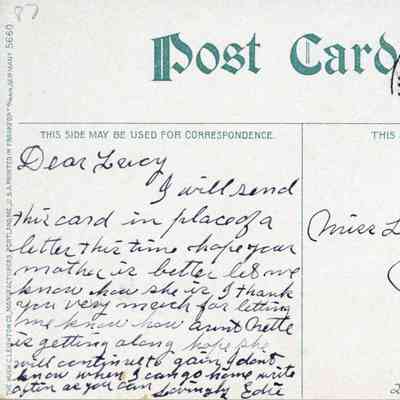 87
Post Card
THIS SIDE MAY BE USED FOR CORRESPONDENCE.
THIS
Dear Lucy
I will send
this card in place of a
letter this time hope your
mother is better let me
know how she is I thank
you very much for letting
me know how aunt Nettie
is getting along hope she
will continue to gain, I dont
know when I can go home write
often as you can Lovingly Edie
Miss L
THE HUGH C. LEIGHTON CO., MANUFACTURERS, PORTLAND, ME., U.S.A. PRINTED IN FRANKFORT GERMANY 5660